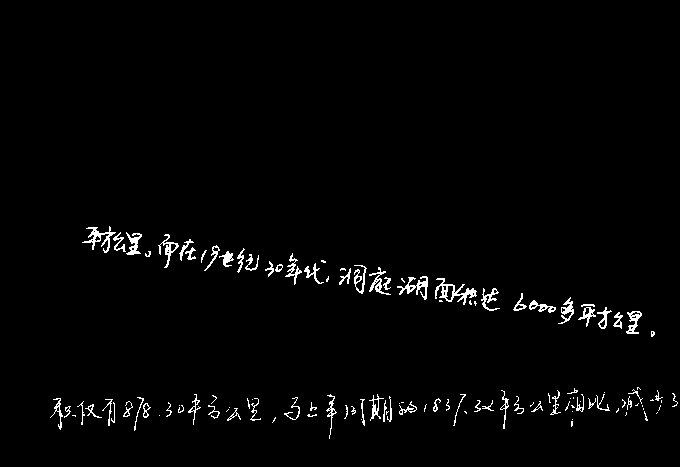 平方公里。而在19世纪30年代,洞庭湖面积达6000多平方公里。
积仅有878.30平方公里,与上年同期的1837.32平方公里相比,减少3